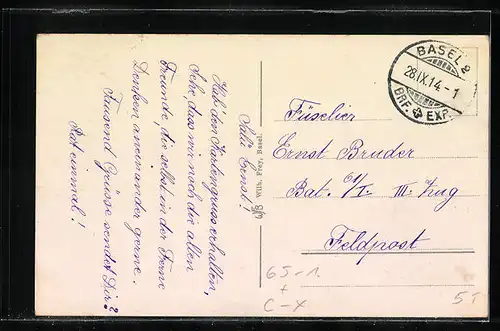 Sali Ernst!
Hab' den Kartengruss erhalten,
Sehe, dass wir noch die alten
Freunde, die selbst in der Ferne
Denken aneinander gerne.
Tausend Grüsse sendet Dir?
Rat einmal!
Wilh. Frey, Basel.
BASEL 2
28.IX.14-1
BRF. EXP.
Füselier
Ernst Bruder
Bat. 61/I. III. Zug
Feldpost
65-1.
+
C-X
5T